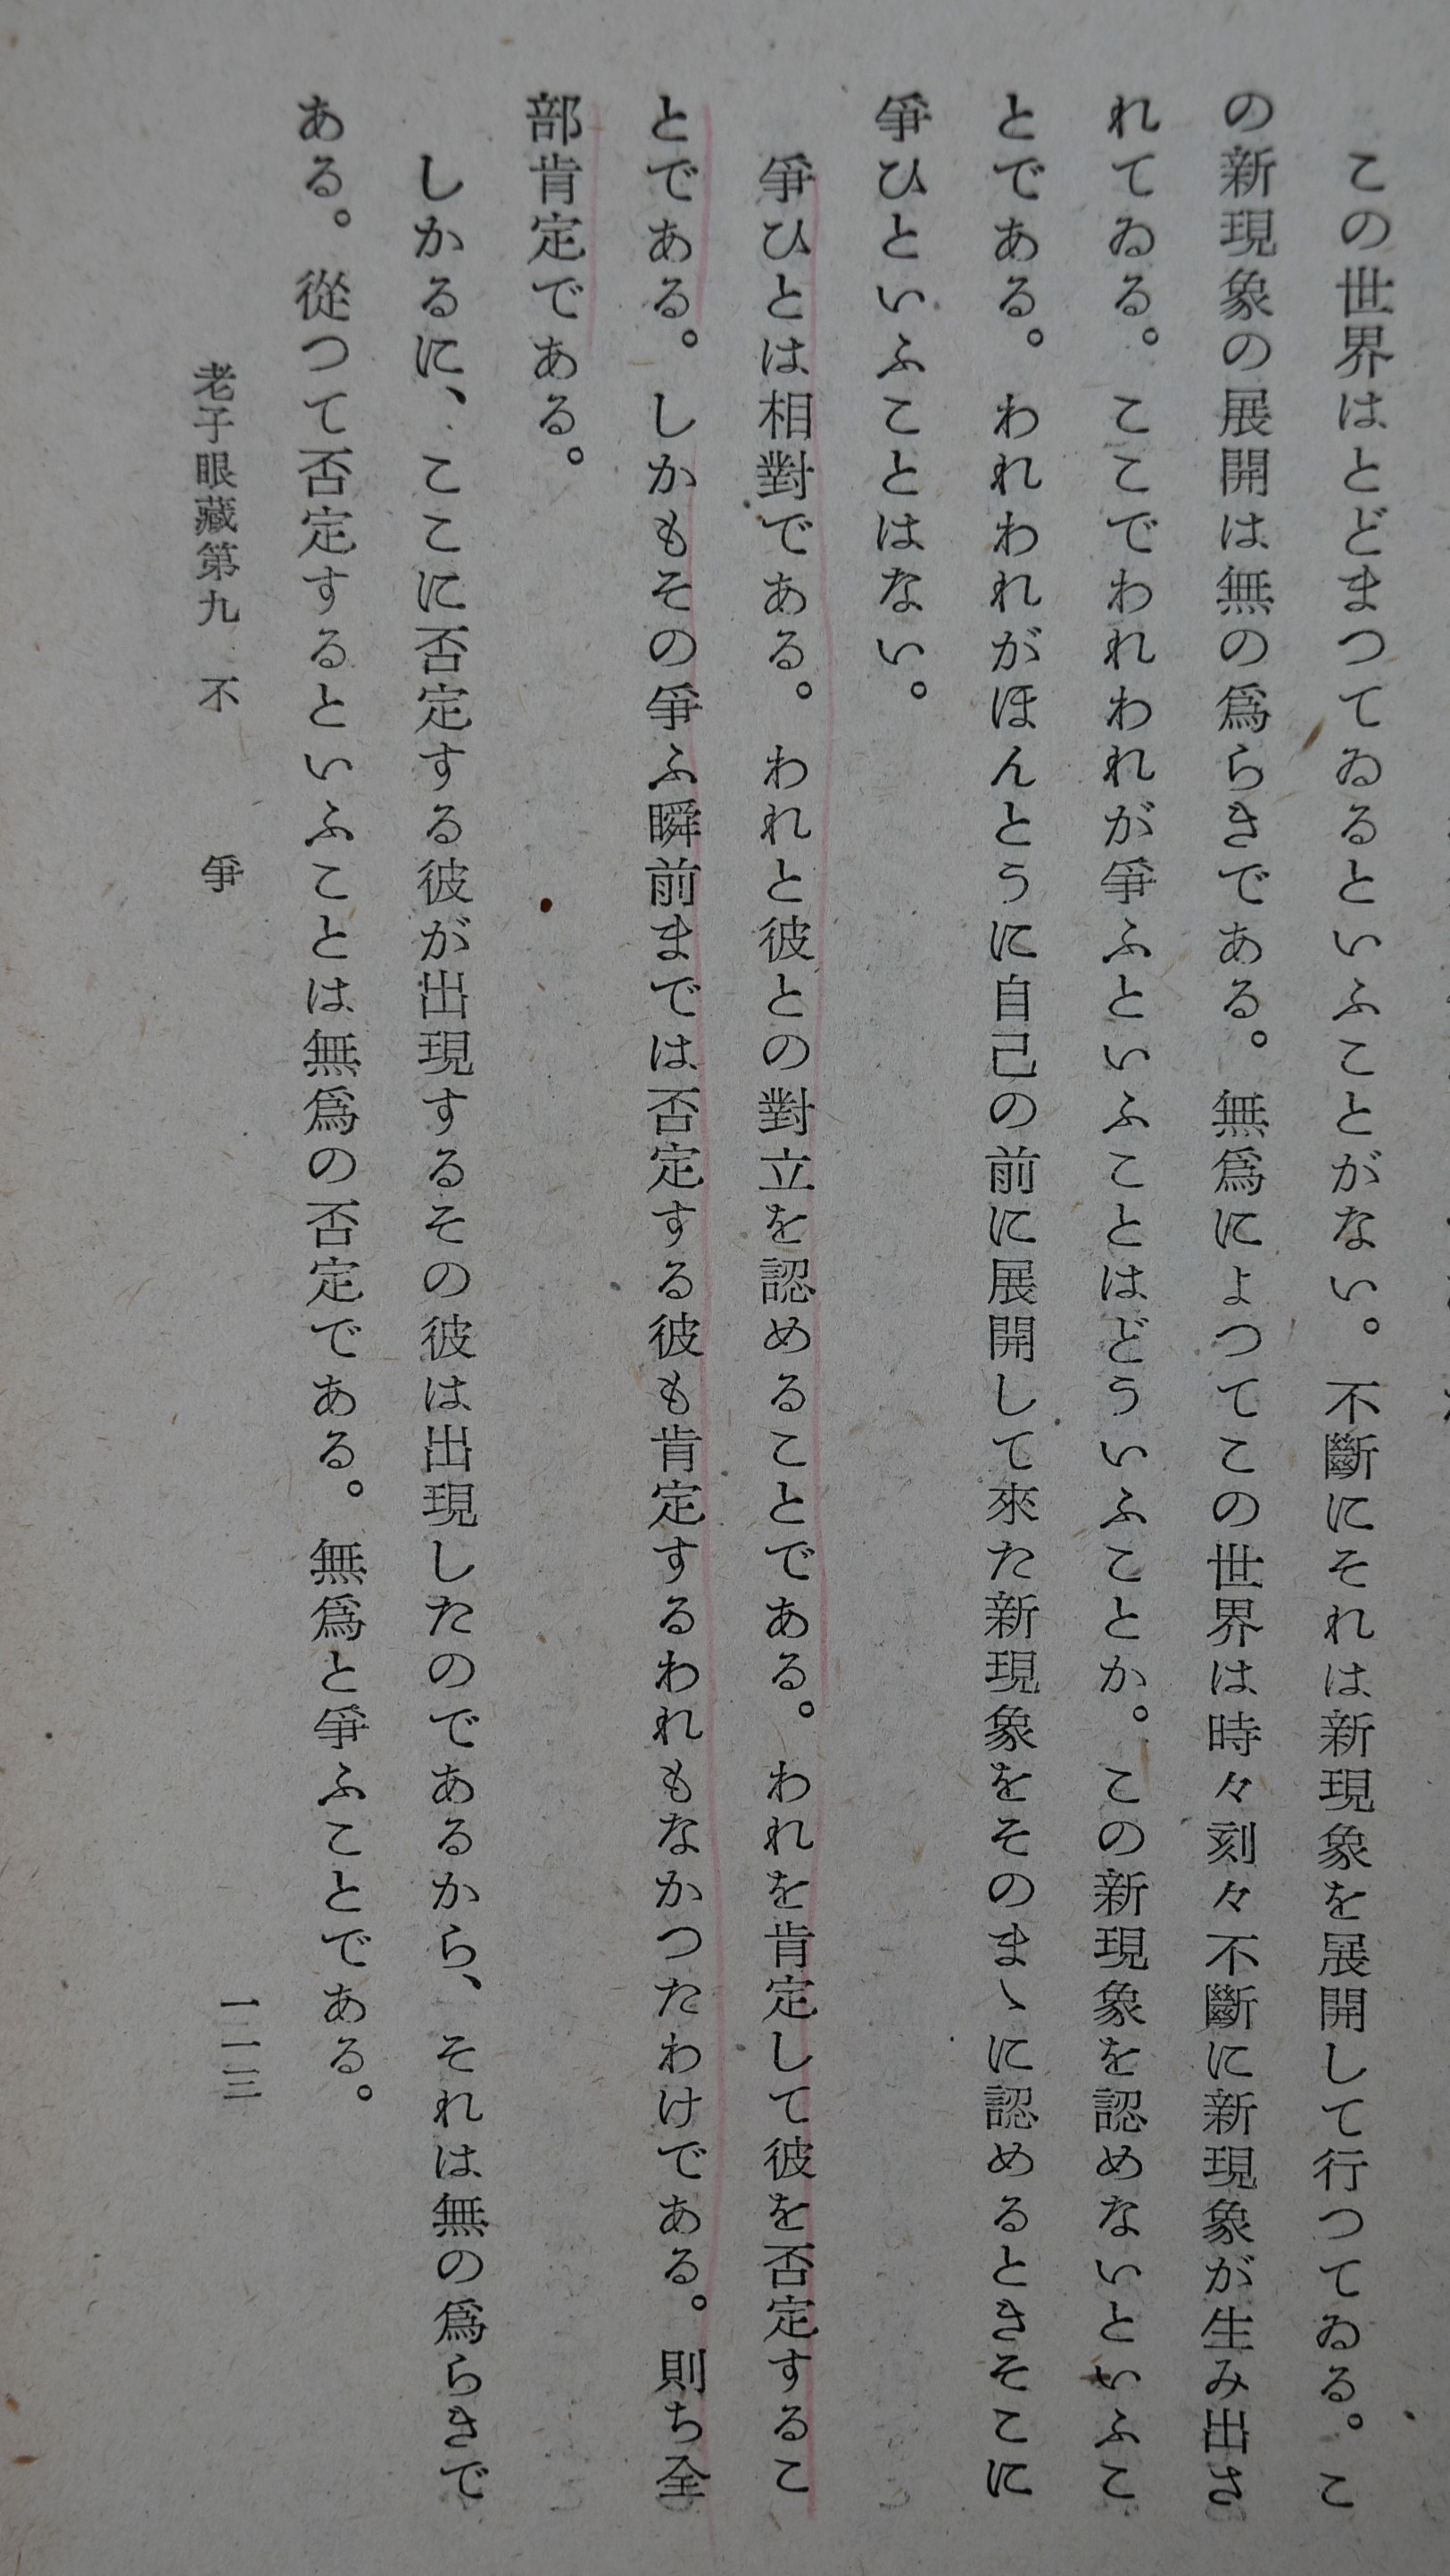 この世界はとどまつてゐるといふことがない。不斷にそれは新現象を展開して行つてゐる。こ
の新現象の展開は無の爲らきである。無爲によつてこの世界は時々刻々不斷に新現象が生み出さ
れてゐる。ここでわれわれが爭ふといふことはどういふことか。この新現象を認めないといふこ
とである。われわれがほんとうに自己の前に展開して來た新現象をそのまゝに認めるときそこに
爭ひといふことはない。
爭ひとは相對である。われと彼との對立を認めることである。われを肯定して彼を否定するこ
とである。しかもその爭ふ瞬前までは否定する彼も肯定するわれもなかつたわけである。則ち全
部肯定である。
しかるに、ここに否定する彼が出現するその彼は出現したのであるから、それは無の爲らきで
ある。從つて否定するといふことは無爲の否定である。無爲と爭ふことである。
老子眼藏第九 不 爭
一一三